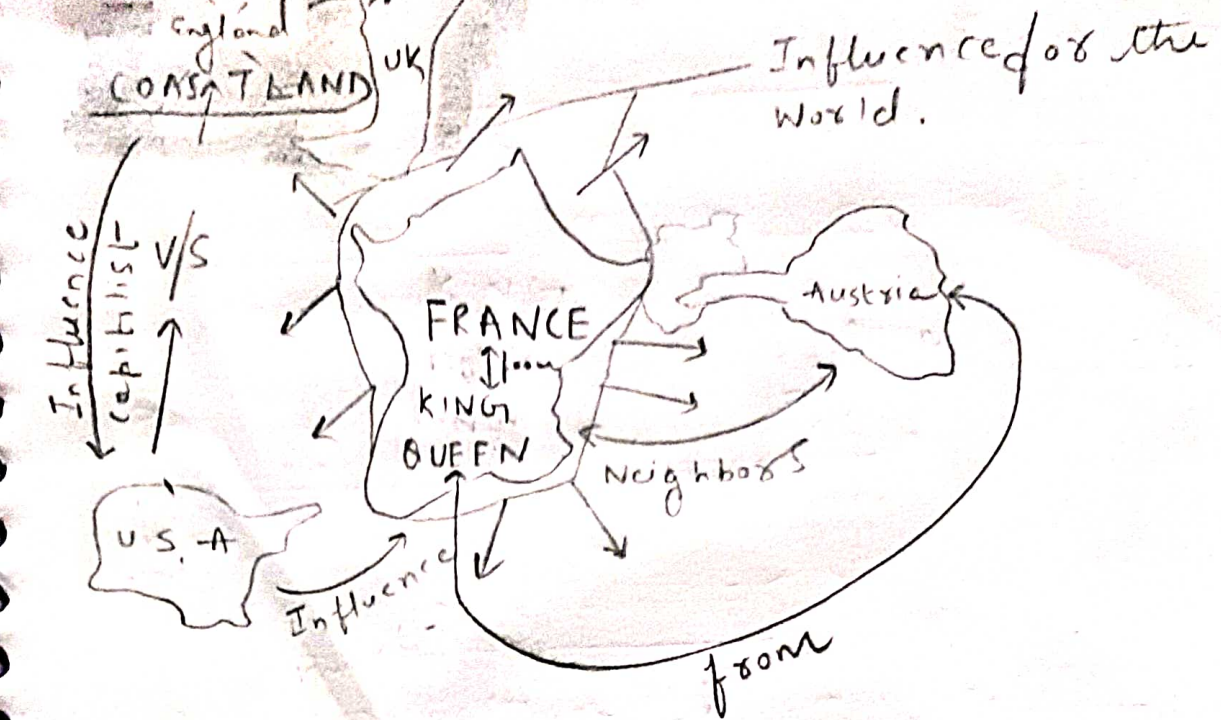 England
COASATLAND
UK
Influence for the
World.
Influence
capitilist
V/S
FRANCE
KING
QUEEN
Austria
Neighbors
U.S.A
Influence
from